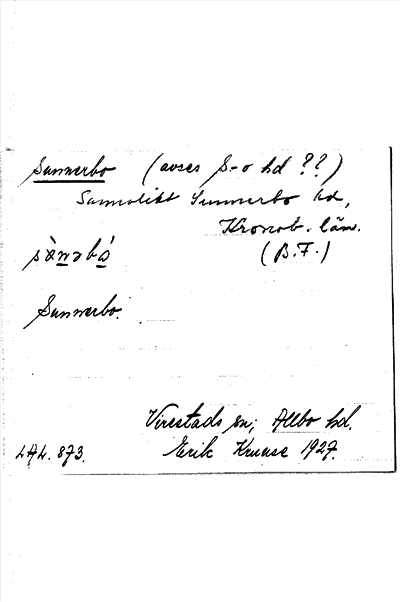 Sunnerbo (avses S-o hd ??)
Sannolikt Sunnerbo hd,
Kronob. län.
(B.F.)
sànəbó
Sunnerbo.
Virestads sn; Allbo hd.
LAL. 873. Erik Kruuse 1927.